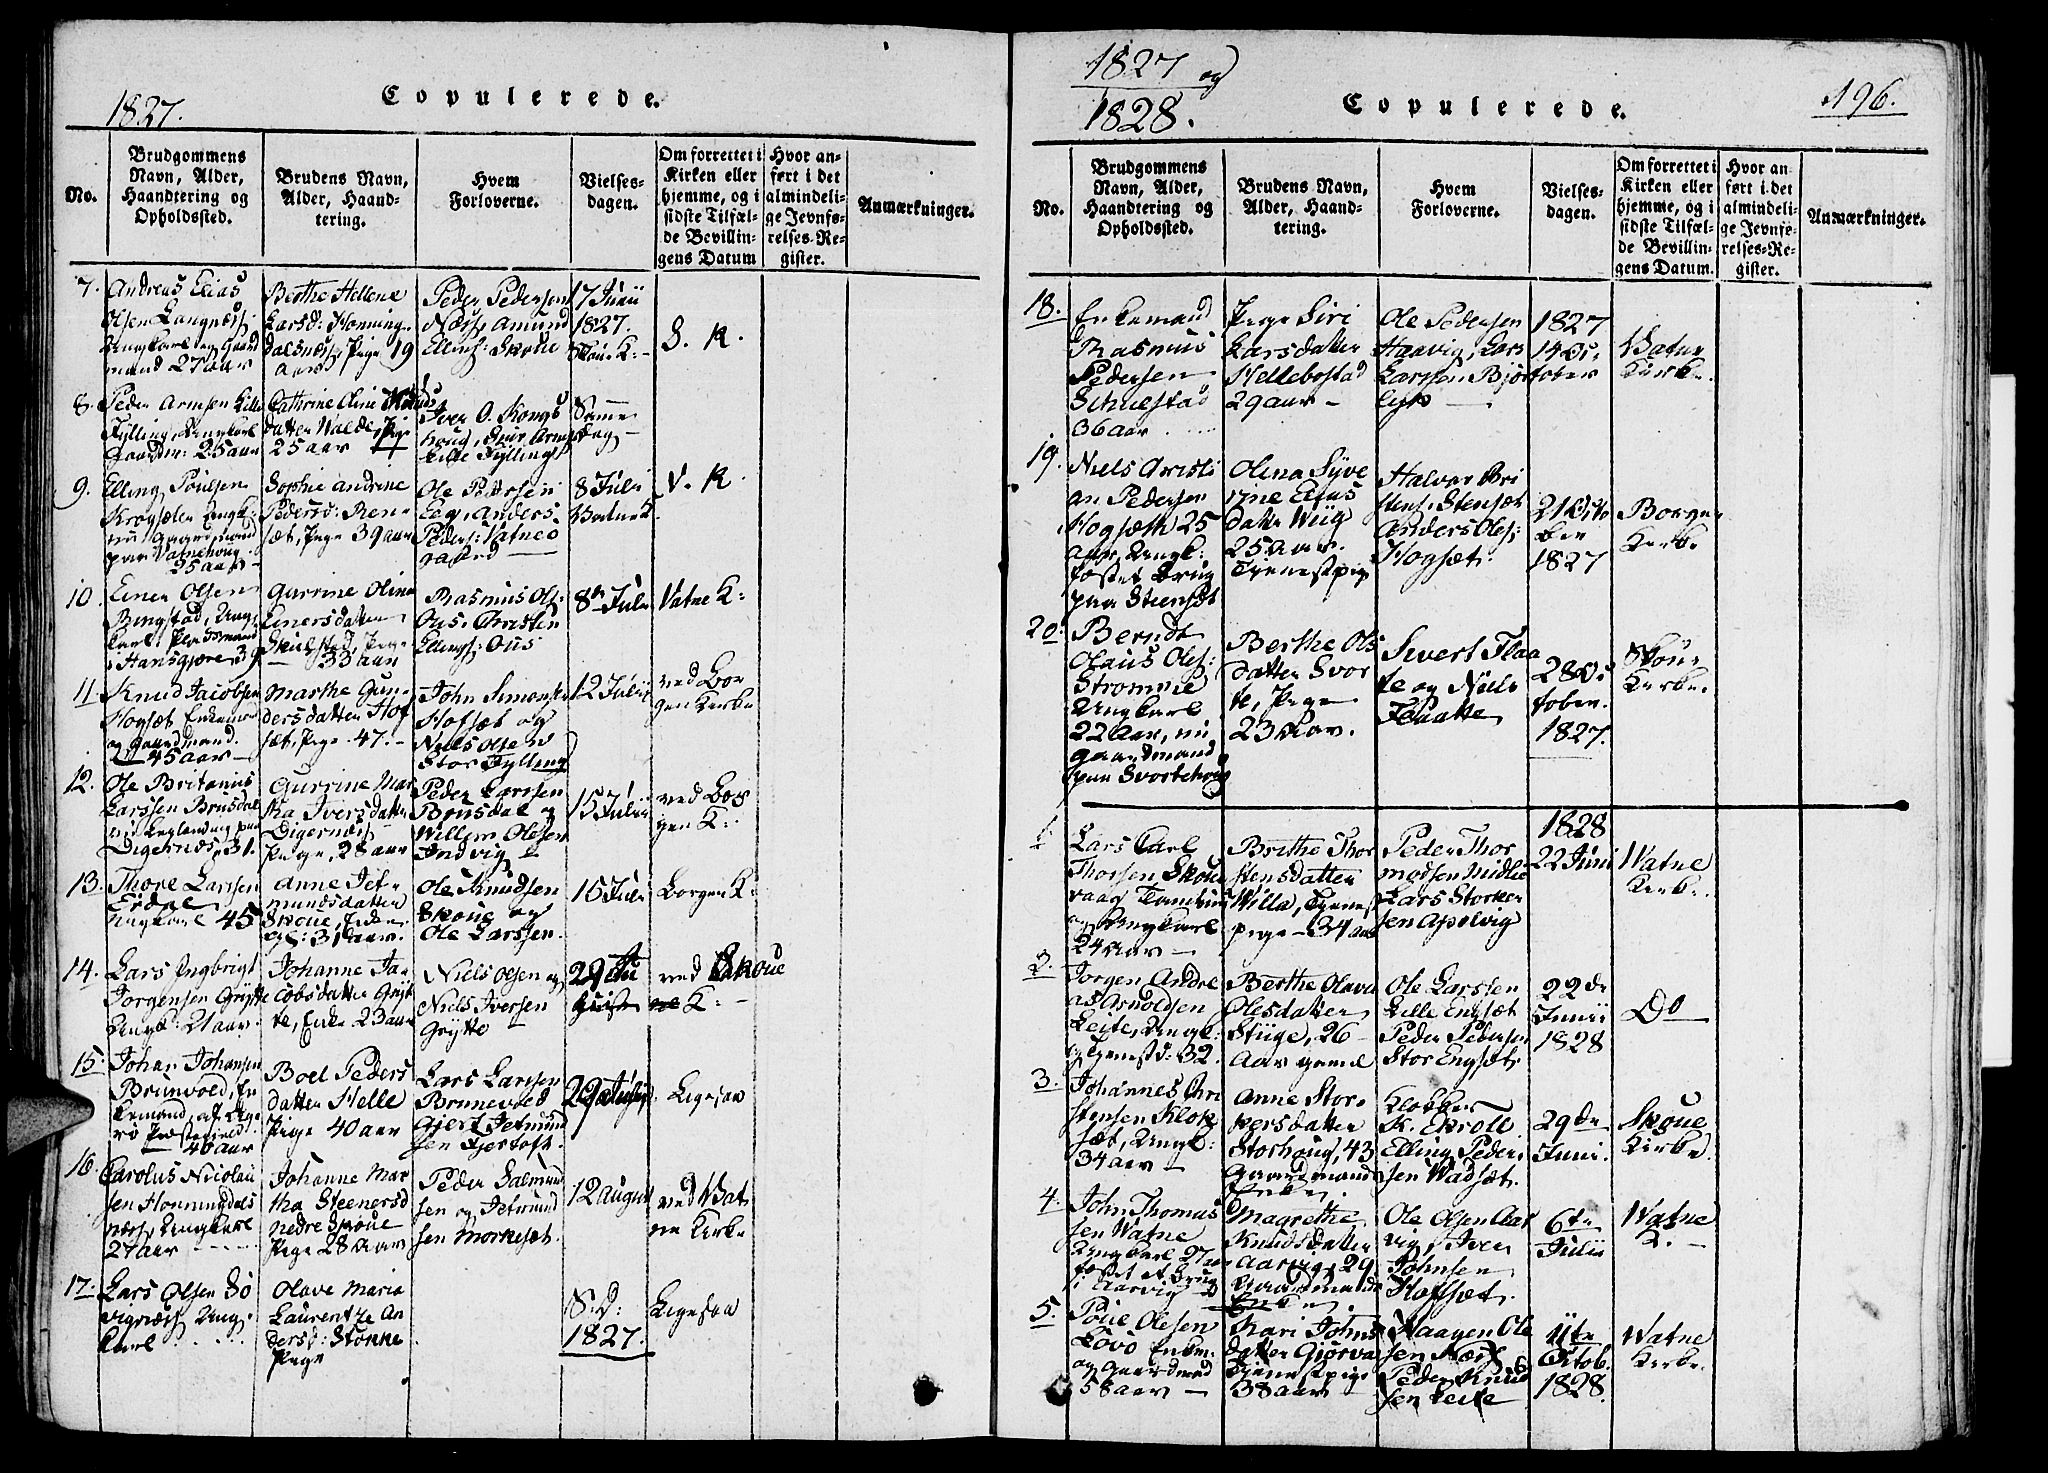 1827.
Copulerede.
No.
Brudgommens
Navn, Alder,
Haandtering og
Opholdssted.
Brudens Navn,
Alder, Haand-
tering.
Hvem
Forloverne.
Vielses-
dagen.
Om forrettet i
Kirken eller
hjemme, og i
sidste Tilfæl-
de Bevillin-
gens Datum
Hvor an-
ført i det
almindeli-
ge Jevnfø-
relses-Re-
gister.
Anmærkninger.
7.
Andreas Elias
Olsen Langnæss
Ungkarl og Gaard
mand 27 aar
Berthe Hellene
Larsd: Honning-
dalsnæss, Pige 19
aar
Peder Pedersen
Næss, Amund
Ellingss: Skoue
17 Junii
1827.
Skoue K:
S. K.
8.
Peder Arnsen Lille
Fylling, Ungkarl
Gaardm: 25 aar
Cathrine Oline
datter Walde, Pige
25 aar
Iver O. Kongs
houg, Siur Arns:
Lille Fylling
Samme
Dag
9.
Elling Poulsen
Krogsæter Ungk:
nu Gaardmand
paa Vatnehoug
25 aar
Sophie Andrine
Pedersd: Ren-
sæt, Pige 39 aar
Ole Petersen
Eeg, Anders
Peders: Vatne
gaard
8 Julii
Vatne K.
V. K.
10.
Einer Olsen
Ringstad, Ung-
karl, Pladsmand
i Hansgjæren 39
Gurrine Olina
Einersdatter
Skielstad, Pige
33 aar
Rasmus Ols:
Ous, Christen
Ellings: Ous
8de Julii
Vatne K:
11.
Knud Jacobsen
Hogsæt Enkeman
og Gaardmand.
45 aar
Marthe Gun-
dersdatter Hof
sæt, Pige 47.
John Simonsen
Hofsæt og
Niels Olsen
Stor Fylling
12 Julii
ved Bor
gen Kirke
12.
Ole Britanius
Larssen Brusdal
nu Leglending paa
Digernæs, 31.
Gurrine Mar
tha Iversdatter
Digernæss
Pige, 28 aar
Peder Larssen
Brusdal og
Willem Olesen
Indvig
15 Julii
ved Bor
gen K:
13.
Thore Larssen
Erdal
Ungkarl 45
Anne Jet-
mundsdatter
Skoue, Enke
og: 31 aar.
Ole Knudsen
Skoue og
Ole Larssen.
15 Julii
Borgen K:
14.
Lars Ingbrigt
Jorgensen Grytte
Ungk: 21 aar.
Johanne Ja-
cobsdatter Gryt
te, Enke 23 aar
Niels Olsen og
Niels Iversen
Grytte
29 Ju
ved Skoue
K:
15.
Johan Johansen
Brunvold, En
kemand, af Ulge
rø Præstegield
40 aar
Boel Peders
datter Helle
Pige 40 aar
Lars Larssen
Brunevold
Gjert Jetmund
sen Fjertoft.
29 Julii
Ligesaa
16.
Carolus Nicolai
sen Honningdals
næss, Ungkarl
27 aar
Johanne Mar
tha Steenersd
nedre Skoue
Pige 28 Aar
Peder Salmund
sen og Jetmund
sen Morkeset.
12 August
ved Vat
ne Kirke
17.
Lars Olsen Sö
vignæss Ung-
karl
Olave Maria
Laurentze An
dersd: Stokke
Pige
S. d:
1827.
Ligesaa
1827 og
1828.
Copulerede.
196.
No.
Brudgommens
Navn, Alder,
Haandtering og
Opholdssted.
Brudens Navn,
Alder, Haand-
tering.
Hvem
Forloverne.
Vielses-
dagen.
Om forrettet i
Kirken eller
hjemme, og i
sidste Tilfæl-
de Bevillin-
gens Datum.
Hvor an-
ført i det
almindeli-
ge Jevnfø-
relses-Re-
gister.
Anmærkninger.
18.
Enkemand
Rasmus
Pedersen
Schielstad
36 aar
Pige Siri
Larsdatter
Hellebostad
29 aar
Ole Pedersen
Haavig, Lars
Larssen Bjør
lyk
1827
14 Oc
tober
Vatne
Kirke.
19.
Niels Christi
an Pedersen
Hogsæth 25
aar, Ungk:
fæstet Brug
paa Steensæt
Olina Syve
rine Elias
datter Wiig
25 aar.
Tjenestpige
Halvor Bri
stens. Stensæt
Anders Oles:
Hogsæt.
21 Octo
ber
1827
Borgen
Kirke
20.
Berndt
Olaus Oles:
Stromme
Ungkarl
22 Aar, nu
Gaardmand
paa Svortehoug
Berthe Ols
datter Svor
te, Pige
23 Aar.
Sivert Flaa
te og Niels
Flaatte
28 Oc
tober.
1827.
Skoue
Kirke.
1.
Lars Carl
Thorsen Skou
vaag Tambur
og Ungkarl
24 Aar
Brithe Thor
stensdatter
Willa, Tjenest
pige - 34 aar
Peder Thor
modsen Midlie
Lars Storker
sen Apalvig
1828
22 Juni
Vatne
Kirke.
2.
Jorgen Andre
as Arnoldsen
Leite, Ungk:
32.
Berthe Olava
Olesdatter
Stüge, 26
Aar gamel
Ole Larssen
Lille Engsæt
Peder Pedersen
Stor Engsæt.
22de
Junii
1828
Do
3.
Johannes Chri
stensen Klok
sæt, Ungk:
34 aar
Anne Stor-
kersdatter
Storhoug, 43
Gaardmands
Enke.
Klokker
K. Ekroll
Elling Peder
sen Wadsæt.
29de
Juni.
Skoue
Kirke.
4.
John Thomas
sen Watne
Ungkarl 27 aar
fæstet et Brug
i Aarvig
Magrethe
Knudsdatter
Aarvig, 29
Gaardmands
Enke.
Ole Olsen Aar
vig, Iver
Johnsen
Hofsæt.
6te
Julii
Watne
K.
5.
Poue Olesen
Lövö Enkem.
og Gaardmand
58 aar
Kari Johns
datter Gjørva
Tjenestpige
38 aar
Haagen Ole
sen Næss
Peder Knud
sen Leite
11te
Octob.
1828.
Watne
Kirke.